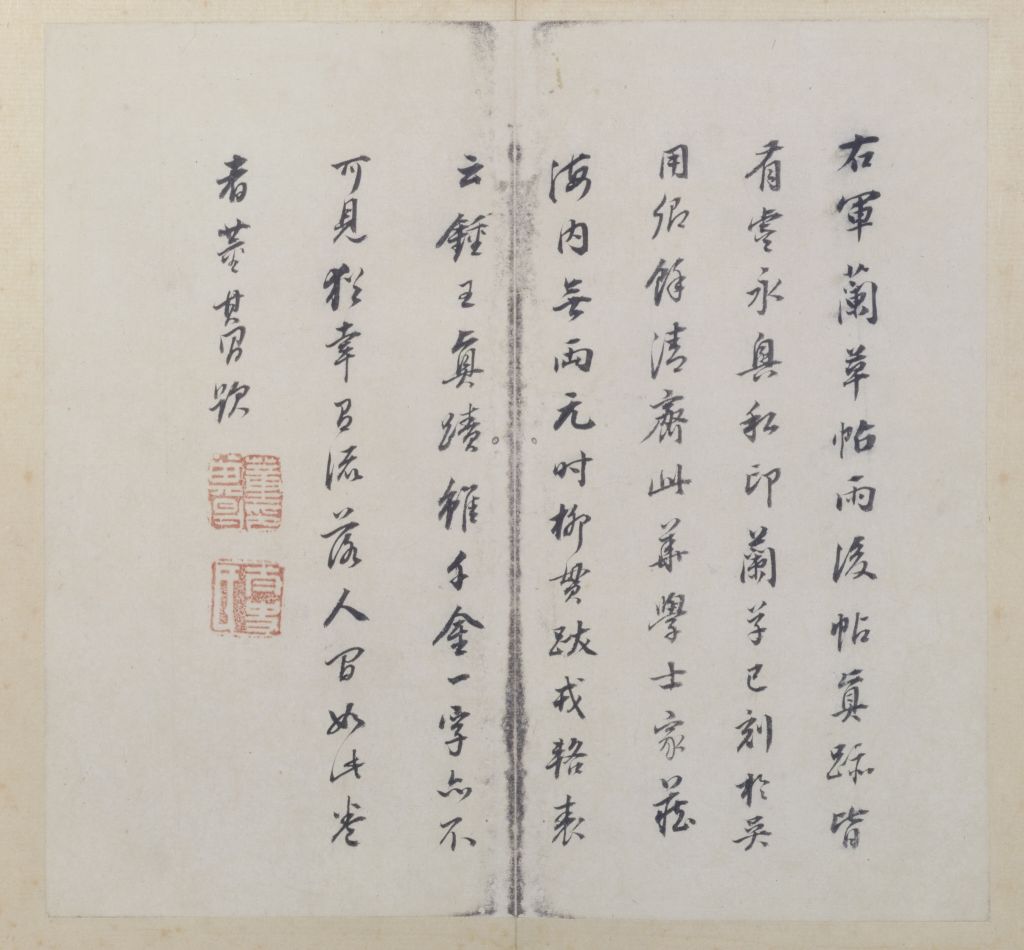 右軍蘭草帖雨後帖眞跡皆
有虞永興私印蘭草已刻於吳
用卿餘清齋此華學士家藏
海内無兩元时柳貫跋戎輅表
云鍾王眞蹟雖千金一字亦不
可見猶幸有流落人間如此卷
者董其昌題
太史氏